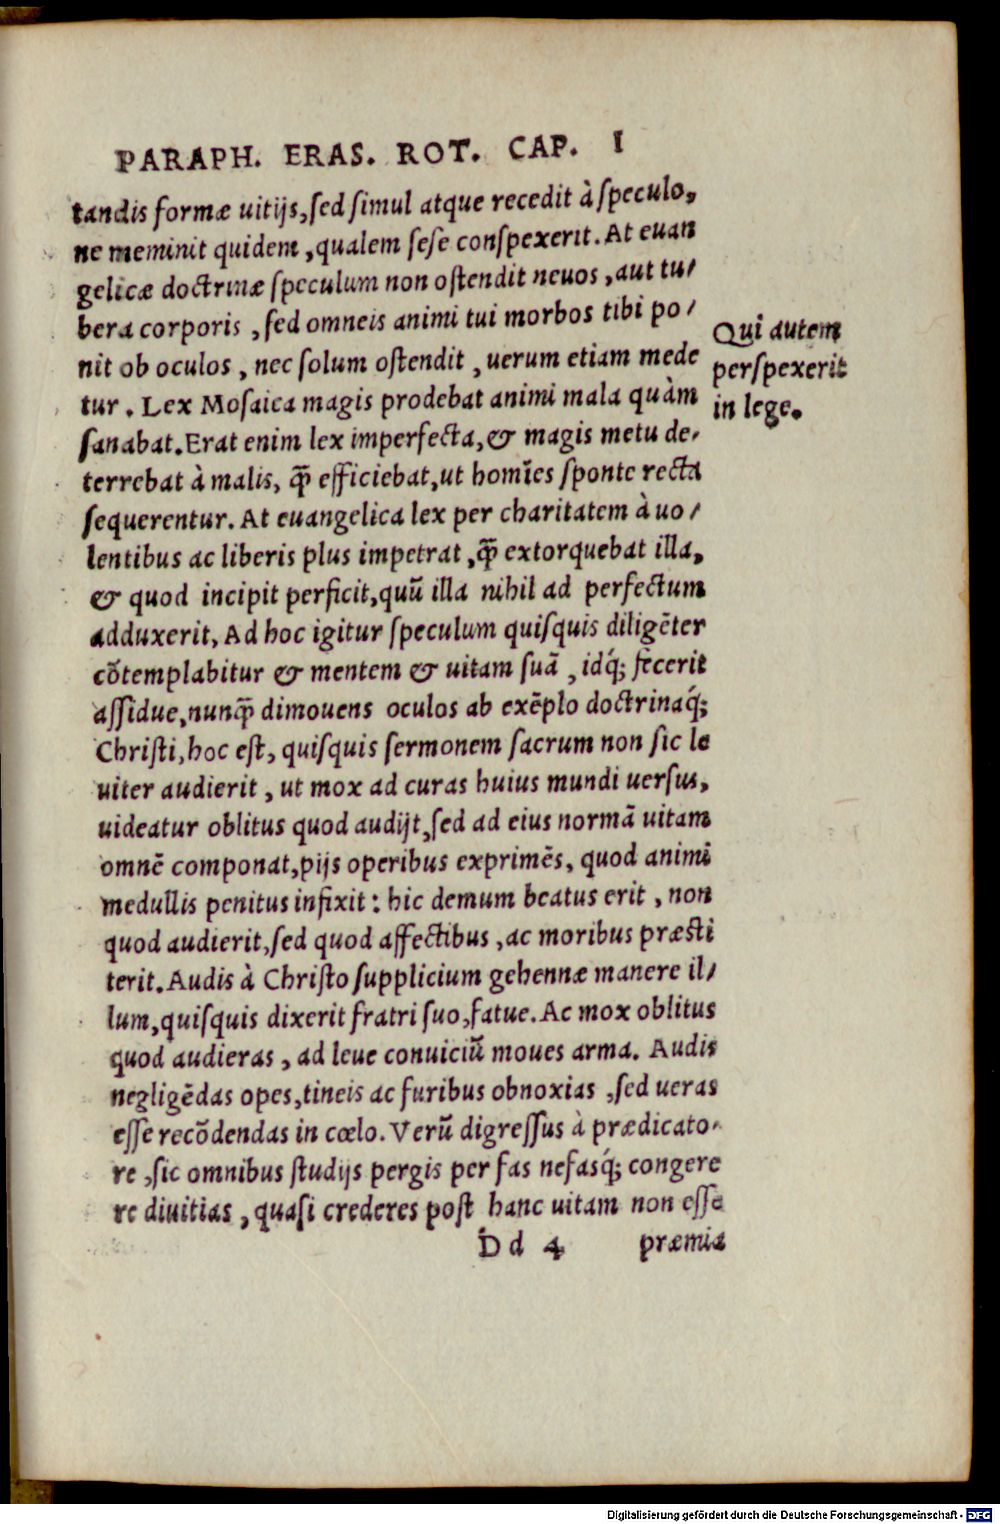 PARAPH. ERAS. ROT. CAP. I
tandis formæ uitijs, sed simul atque recedit à speculo,
ne meminit quidem, qualem sese conspexerit. At euan
gelicæ doctrinæ speculum non ostendit neuos, aut tu/
bera corporis, sed omneis animi tui morbos tibi po/
nit ob oculos, nec solum ostendit, uerum etiam mede
tur. Lex Mosaica magis prodebat animi mala quàm
sanabat. Erat enim lex imperfecta, & magis metu de/
terrebat à malis, q̃ efficiebat, ut homīes sponte recta
sequerentur. At euangelica lex per charitatem à uo/
lentibus ac liberis plus impetrat, q̃ extorquebat illa,
& quod incipit perficit, quũ illa nihil ad perfectum
adduxerit, Ad hoc igitur speculum quisquis diligẽter
cõtemplabitur & mentem & uitam suã, idq́; fecerit
assidue, nunq̃ dimouens oculos ab exẽplo doctrinaq́;
Christi, hoc est, quisquis sermonem sacrum non sic le
uiter audierit, ut mox ad curas huius mundi uersus,
uideatur oblitus quod audijt, sed ad eius normã uitam
omnẽ componat, pijs operibus exprimẽs, quod animi
medullis penitus infixit: hic demum beatus erit, non
quod audierit, sed quod affectibus, ac moribus præsti
terit. Audis à Christo supplicium gehennæ manere il/
lum, quisquis dixerit fratri suo, fatue. Ac mox oblitus
quod audieras, ad leue conuiciũ moues arma. Audis
negligẽdas opes, tineis ac furibus obnoxias, sed ueras
esse recõdendas in cœlo. Verũ digressus à prædicato/
re, sic omnibus studijs pergis per fas nefasq́; congere
re diuitias, quasi crederes post hanc uitam non esse
Dd 4 præmia
Qui autem
perspexerit
in lege.
Digitalisierung gefördert durch die Deutsche Forschungsgemeinschaft - DFG